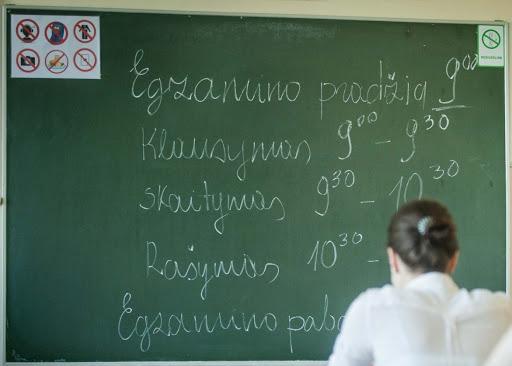 Egzamino pradžia 9⁰⁰
Klausymas 9⁰⁰ – 9³⁰
Skaitymas 9³⁰ – 10³⁰
Rašymas 10³⁰ –
Egzamino paba